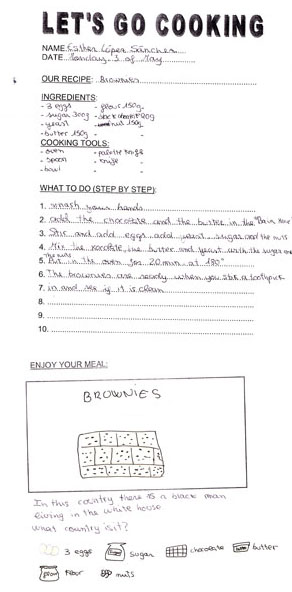 LET'S GO COOKING
NAME: Esther López Sánchez
DATE Monday, 3 of May
OUR RECIPE: Brownies
INGREDIENTS:
- 3 eggs - flour 150g.
- sugar 300g - 
- yeast - nut 150g.
- butter 150g -
COOKING TOOLS:
- oven - palette knife
- spoon - knife
- bowl -
WHAT TO DO (STEP BY STEP):
1. wash your hands
2. add the chocolate and the butter in the
3. Stir and add eggs, add yeast, sugar and the nuts
4. Mix the the butter and yeast with the sugar and
the nuts
5. Put in the oven for 20 min. at 180°
6. The brownies are ready when you stick a toothpick
7. in and see if it is clean
8.
9.
10.
ENJOY YOUR MEAL:
BROWNIES
In this country there is a black man
living in the white house
what country is it?
3 eggs sugar chocolate butter
flour nuts